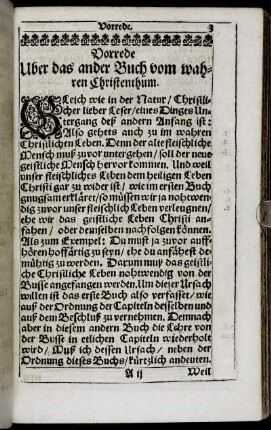 Vorrede. 3
Vorrede
Uber das ander Buch vom wah-
ren Christenthum.
GLeich wie in der Natur/ Christli-
cher lieber Leser/ eines Dinges Un-
tergang deß andern Anfang ist:
Also gehets auch zu im wahren
Christlichen Leben. Denn der alte fleischliche
Mensch muß zuvor untergehen/ soll der neue
geistliche Mensch hervor kommen. Und weil
unser fleischliches Leben dem heiligen Leben
Christi gar zu wider ist/ wie im ersten Buch
gnugsam erkläret/ so müssen wir ja nohtwen-
dig zuvor unser fleischlich Leben verleugnen/
ehe wir das geistliche Leben Christi an-
fahen/ oder demselben nachfolgen können.
Als zum Exempel: Du must ja zuvor auff-
hören hoffärtig zu seyn/ ehe du anfähest de-
mühtig zu werden. Darum muß das geistli-
che Christliche Leben nohtwendig von der
Busse angefangen werden. Um dieser Ursach
willen ist das erste Buch also verfasset/ wie
auß der Ordnung der Capiteln desselben und
auß dem Beschluß zu vernehmen. Demnach
aber in diesem andern Buch die Lehre von
der Busse in etlichen Capiteln wiederholt
wird/ Muß ich dessen Ursach/ neben der
Ordnung dieses Buchs/ kürtzlich andeuten.
A ij Weil